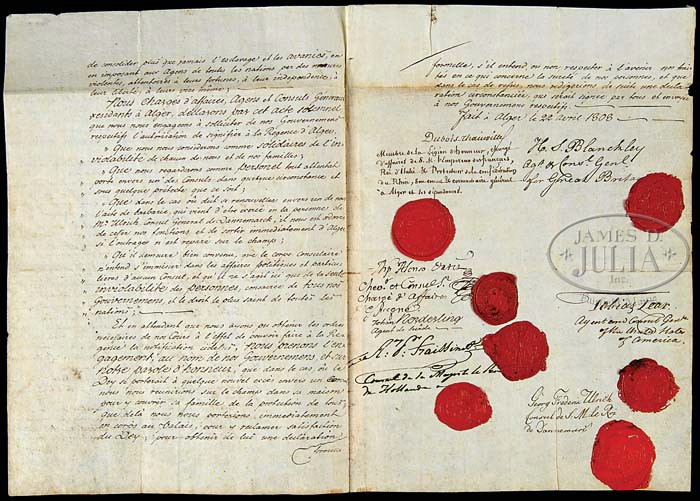 de consolider plus que jamais l'esclavage et les avanies, en
en imposant aux Agens de toutes les nations, par des mesures
violentes, attentoires à leurs fortunes, à leur indépendance, à
leur liberté, à leur vie même;
Nous Chargés d'affaires, Agens et Consuls Généraux
residant à Alger, déclarons par cet acte solemnel
que nous nous engageons à solliciter de nos Gouvernemens
respectifs l'autorisation de signifier à la Régence d'Alger,
" Que nous nous considerons comme solidaires de l'in-
violabilité de chacun de nous et de nos familles;
" Que nous regardons comme personnel tout attentat
porté envers un des Consuls, dans quelques circonstances et
sous quelque prétexte que ce soit;
" Que dans le cas où doit se renouveller envers un de nous
l'acte de barbarie, qui vient d'être exercé en la personne de
Mr. Ulrich, Consul Général de Dannemarck, il nous est ordonné
de cesser nos fonctions, et de sortir immediatement d'Alger,
si l'outrage n'est réparé sur le champ;
" Qu'il demeure bien convenu, que le corps consulaire
n'entend s'immiscer dans les affaires politiques et particu-
lieres d'aucun Consul, et qu'il ne s'agit ici que de la seule
inviolabilité des personnes, consacrée de tous nos
Gouvernemens, et le droit le plus saint de toutes les
nations;
Et en attendant que nous avons pu obtenir les ordres
necessaires de nos Cours à l'effet de pouvoir faire à la Ré-
gence la notification susdite, Nous prenons l'en-
gagement, au nom de nos Gouvernemens, et sur
notre parole d'honneur, que dans le cas, où le
Dey se porterait à quelque nouvel excès envers un de
nous, nous nous réunirons sur le champ dans sa maison
pour y couvrir sa famille de la protection de tous,
que delà nous nous porterons, immediatement
en corps au Palais, pour y réclamer satisfaction
du Dey, pour obtenir de lui une déclaration
formelle
formelle, s'il entend, ou non, respecter à l'avenir nos trai-
tés en ce qui concerne la sureté de nos personnes, et que
dans le cas de refus, nous rédigerons de suite une décla-
ration circonstanciée, qui serait signée par tous et envoiée
à nos Gouvernemens respectifs.
Fait à Alger le 22 avril 1808
Dubois thainville
Membre de la Légion d'honneur, chargé
d'affaires de S. M. l'Empereur des français,
Roi d'Italie et Protecteur de la confédération
du Rhin, son commissaire général
à Alger et ses dépendances.
H. S. Blanckley
Agt. & Consl. Genl.
for Great Britain
JAMES D.
JULIA
Inc.
Tobias Lear
Agent and Consul General
of the United States
of America.
Alonso
et Consul
Chargé d'affaires
Johan Norderling
Agent de Suède
A. S. Fraissinet
Consul de Sa Majesté le Roi
de Hollande
Georg Frederic Ulrich
Consul de S. M. le Roi
de Dannemarc